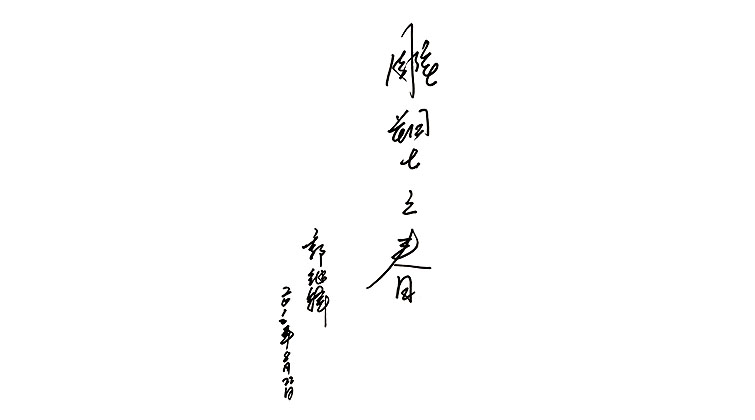 雕塑之春
郭继锋
二〇一二年八月22日